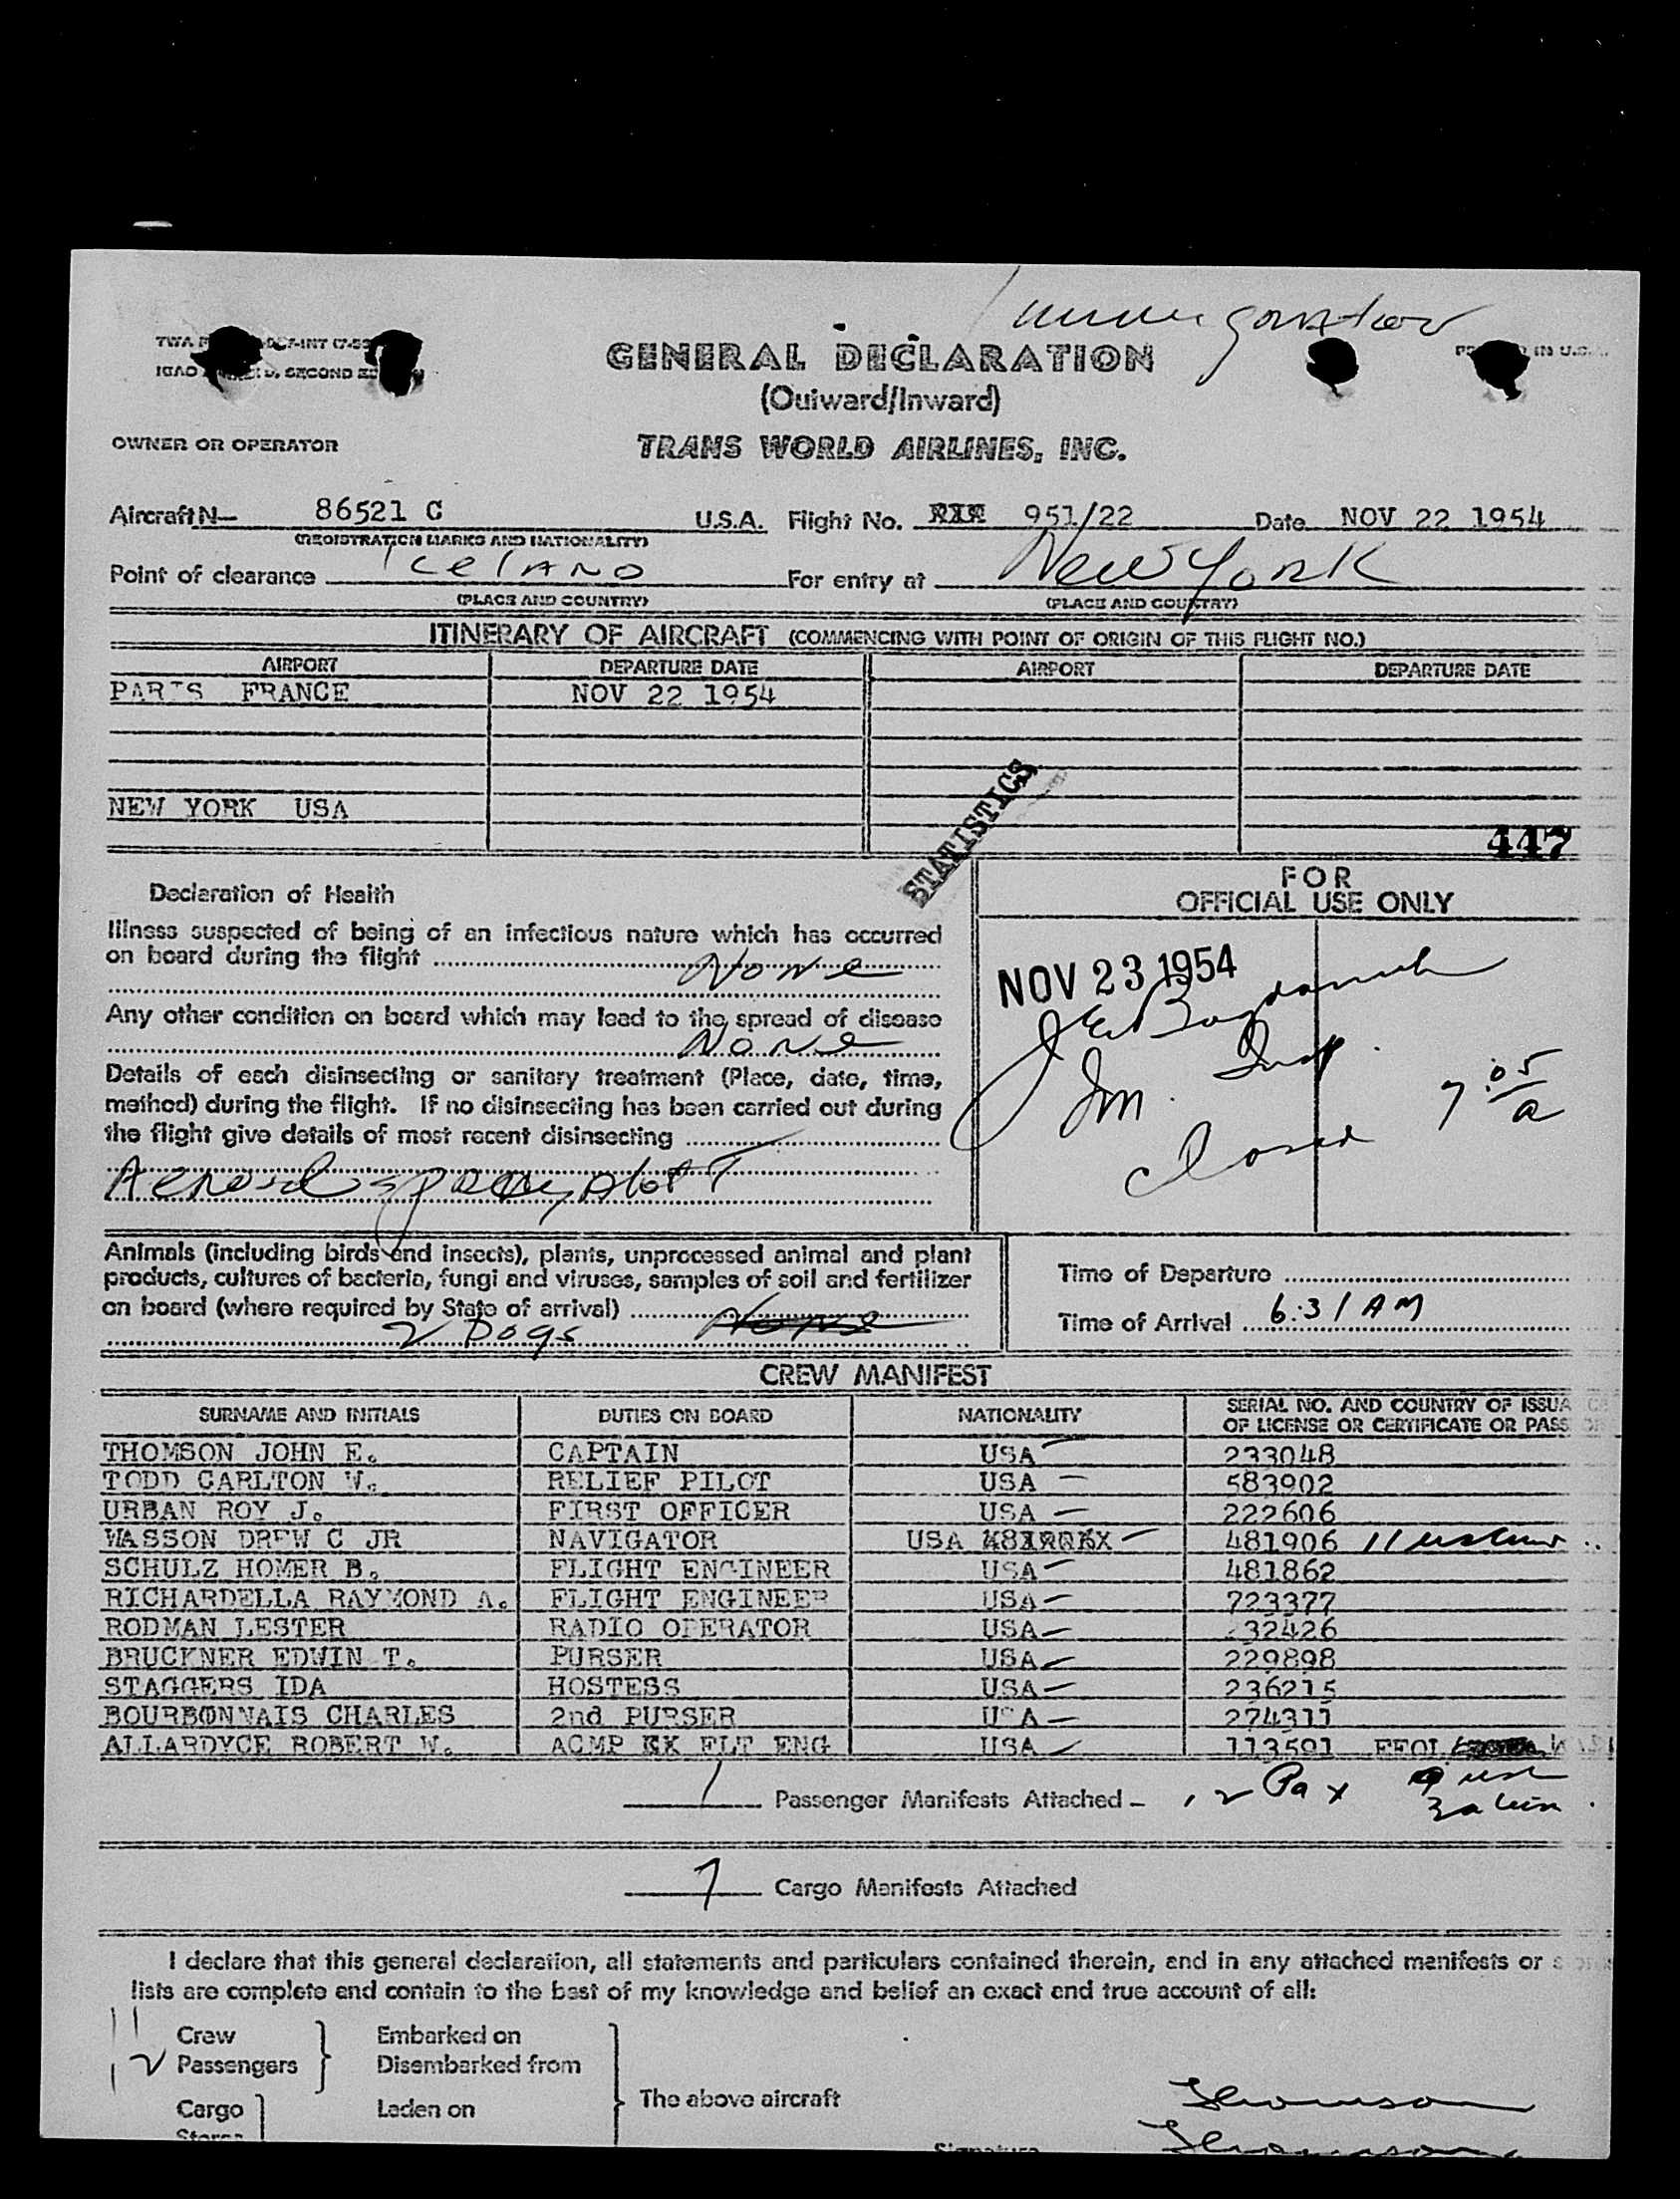 GENERAL DECLARATION
(Outward/Inward)
OWNER OR OPERATOR TRANS WORLD AIRLINES, INC.
Aircraft N— 86521 C U.S.A. Flight No. 951/22 Date NOV 22 1954
(REGISTRATION MARKS AND NATIONALITY)
Point of clearance IcelAND For entry at New York
(PLACE AND COUNTRY) (PLACE AND COUNTRY)
ITINERARY OF AIRCRAFT (COMMENCING WITH POINT OF ORIGIN OF THIS FLIGHT NO.)
AIRPORT DEPARTURE DATE AIRPORT DEPARTURE DATE
PARIS FRANCE NOV 22 1954
NEW YORK USA
STATISTICS
447
Declaration of Health
Illness suspected of being of an infectious nature which has occurred
on board during the flight None
Any other condition on board which may lead to the spread of disease
None
Details of each disinsecting or sanitary treatment (Place, date, time,
method) during the flight. If no disinsecting has been carried out during
the flight give details of most recent disinsecting
FOR
OFFICIAL USE ONLY
NOV 23 1954
Imm. Insp.
7:05 a
Closed
Animals (including birds and insects), plants, unprocessed animal and plant
products, cultures of bacteria, fungi and viruses, samples of soil and fertilizer
on board (where required by State of arrival) None
2 Dogs
Time of Departure
Time of Arrival 6:31 AM
CREW MANIFEST
SURNAME AND INITIALS DUTIES ON BOARD NATIONALITY SERIAL NO. AND COUNTRY OF ISSUA
OF LICENSE OR CERTIFICATE OR PASS
THOMSON JOHN E. CAPTAIN USA 233048
TODD CARLTON W. RELIEF PILOT USA 583902
URBAN ROY J. FIRST OFFICER USA 222606
WASSON DREW C JR NAVIGATOR USA 481906
SCHULZ HOMER B. FLIGHT ENGINEER USA 481862
RICHARDELLA RAYMOND A. FLIGHT ENGINEER USA 723377
RODMAN LESTER RADIO OPERATOR USA 32426
BRUCKNER EDWIN T. PURSER USA 229898
STAGGERS IDA HOSTESS USA 236215
BOURBONNAIS CHARLES 2nd PURSER USA 274311
ALLARDYCE ROBERT W. ACMP EX FLT ENG USA 113591
1 Passenger Manifests Attached - 12 Pax
7 Cargo Manifests Attached
I declare that this general declaration, all statements and particulars contained therein, and in any attached manifests or
lists are complete and contain to the best of my knowledge and belief an exact and true account of all:
11 Crew Embarked on
12 Passengers Disembarked from
The above aircraft
Cargo Laden on
Stores
Thomson
Signature Thomson